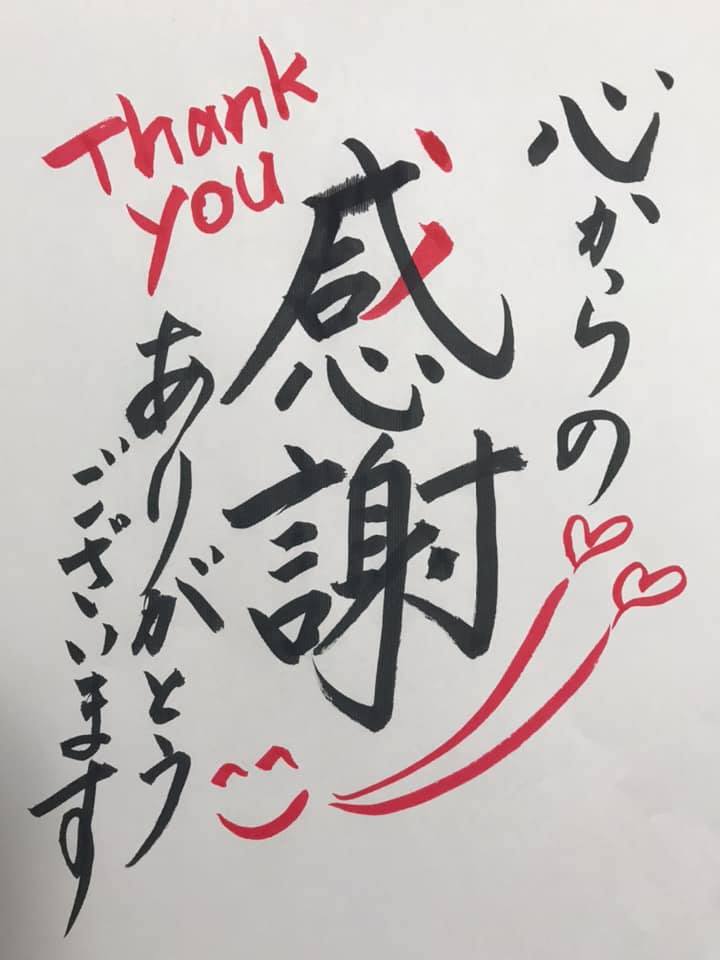 心からの
感謝
Thank
you
ありがとう
ございます